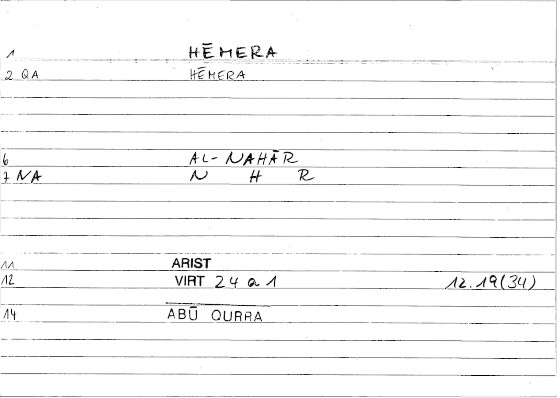 1 HĒMERA
2 QA HĒMERA
6 AL-NAHĀR
7 NA N H R
11 ARIST
12 VIRT 24 a 1 12.19(34)
14 ABŪ QURRA